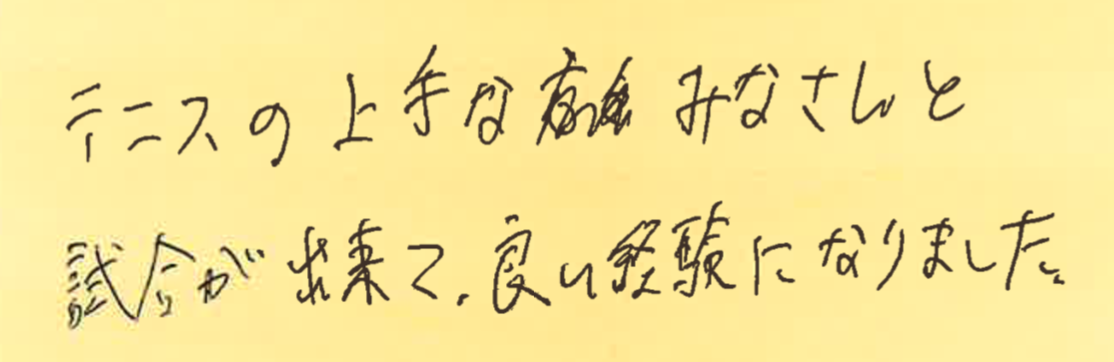 テニスの上手なみなさんと
試合が出来て、良い経験になりました。